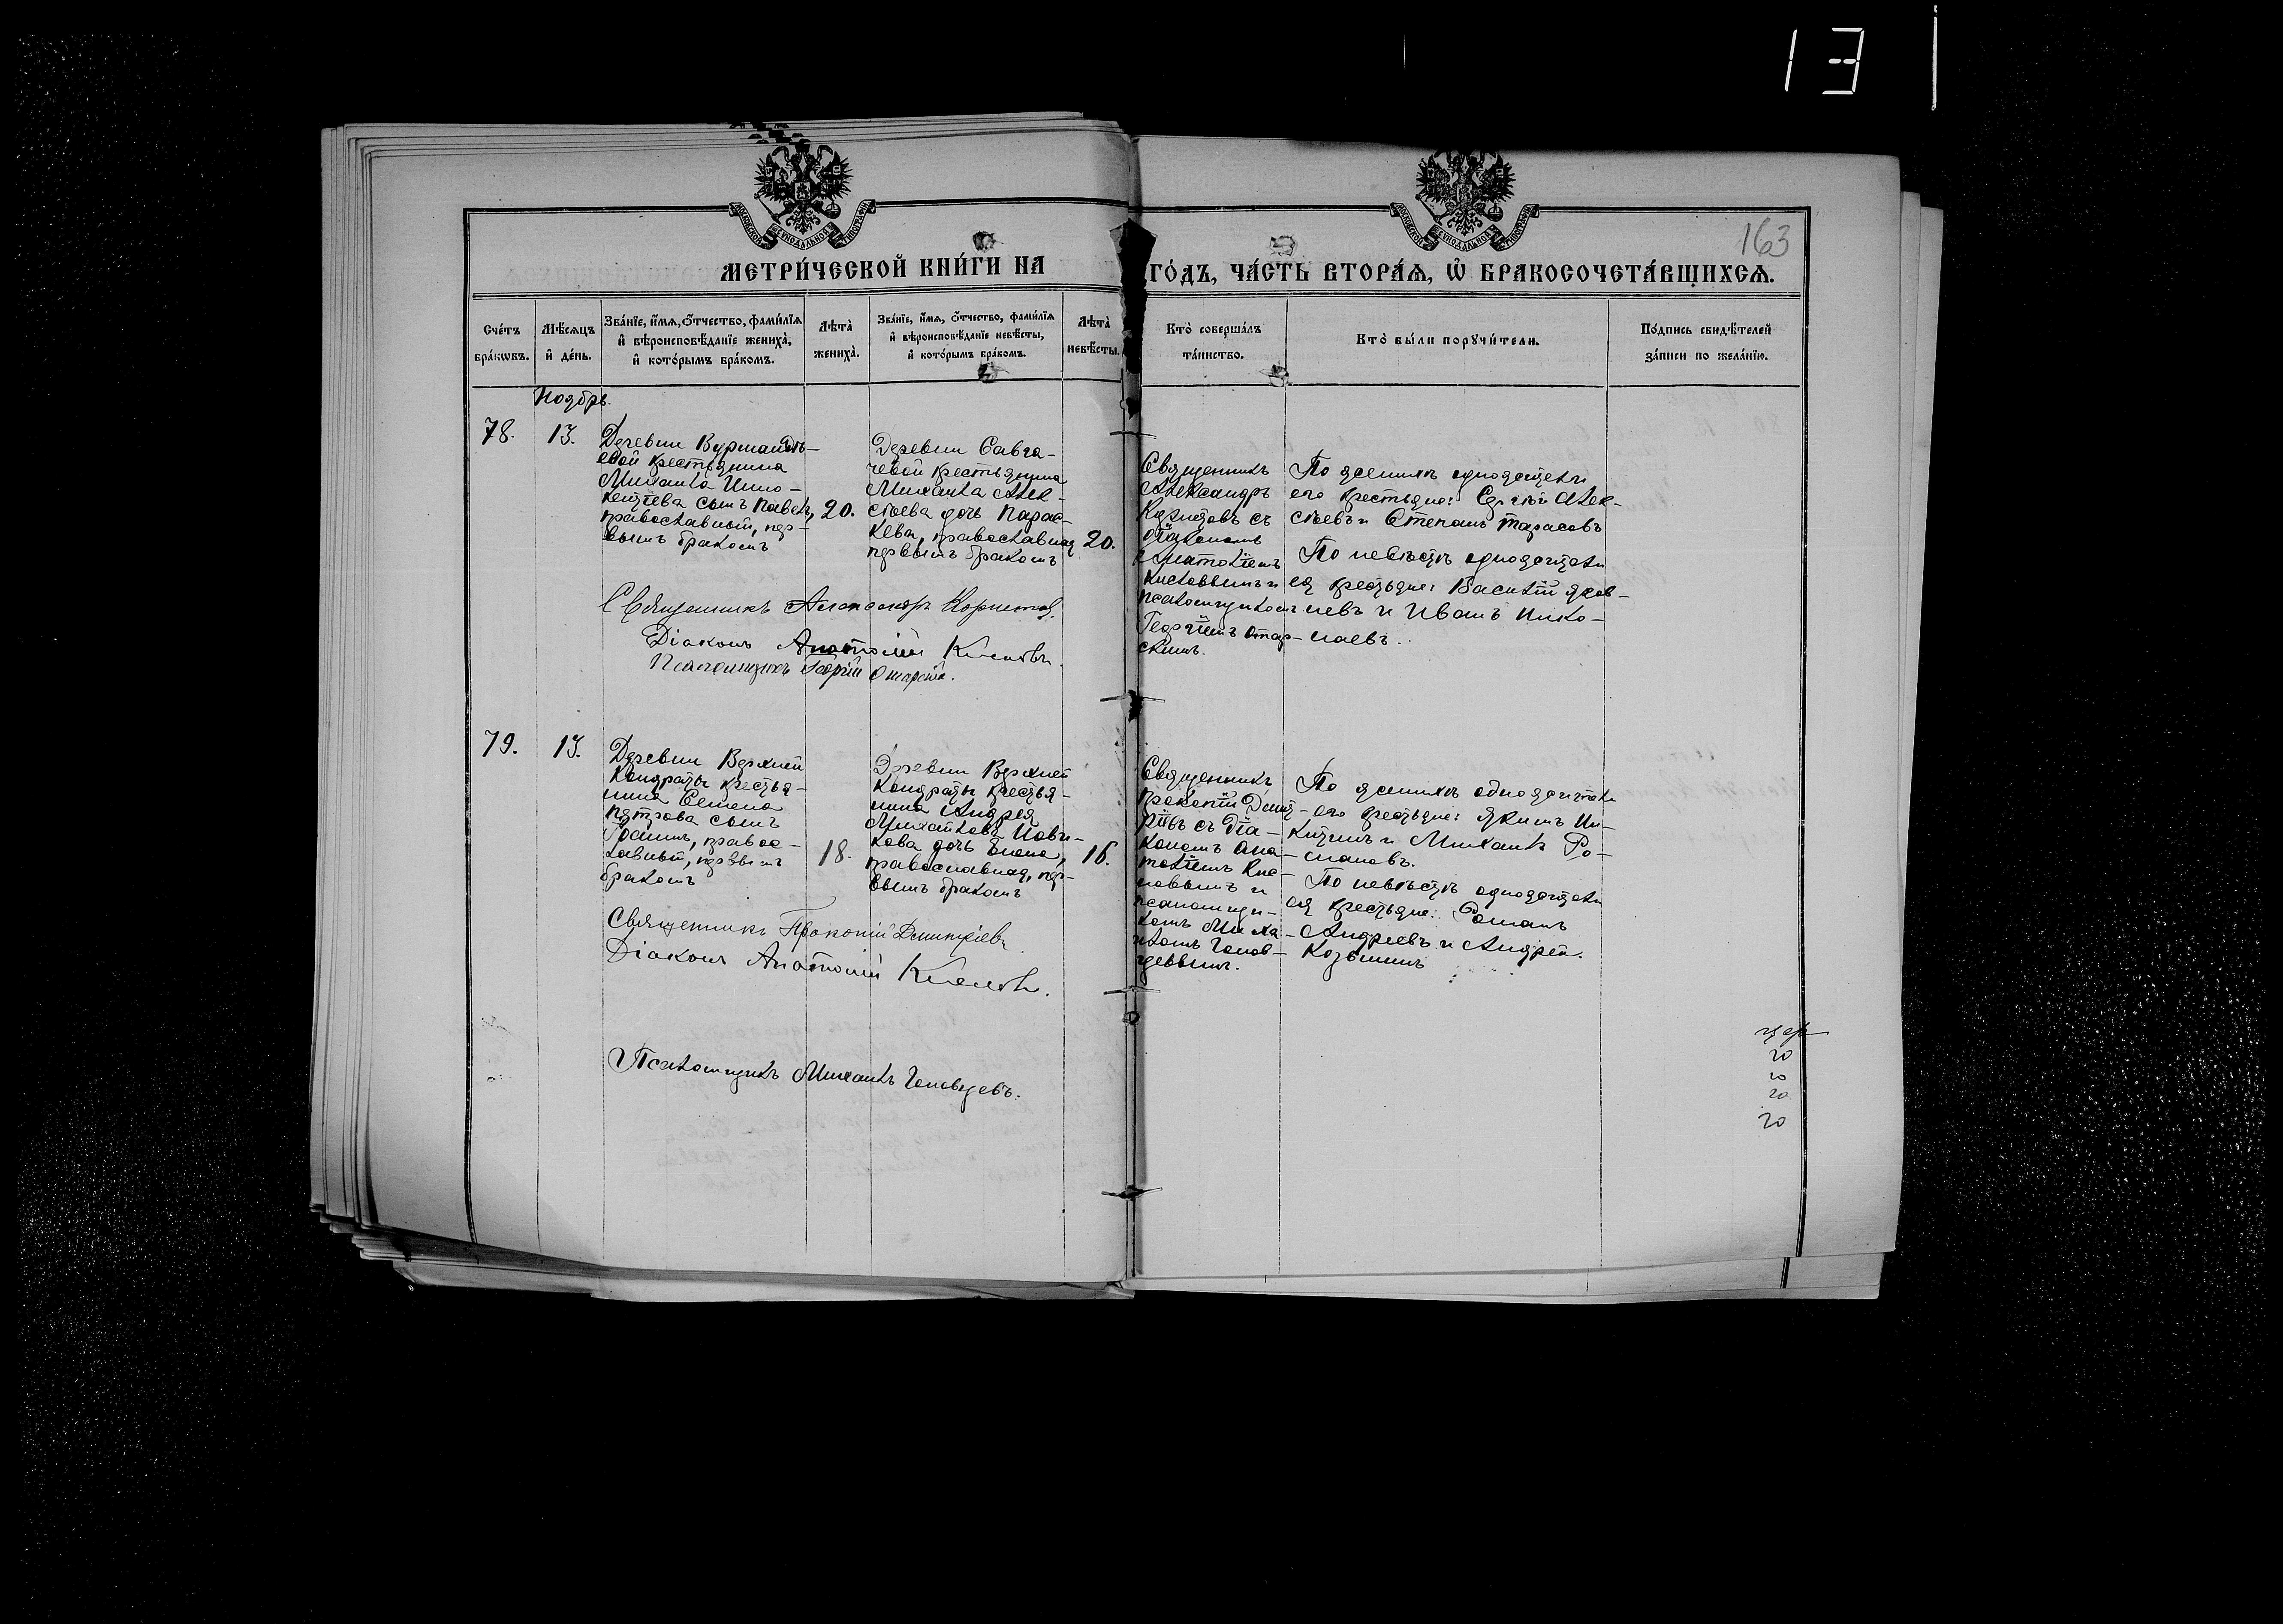 13
163
МОСКОВСКОЙ СѴНОДАЛЬНОЙ ТИПОГРАФІИ
МОСКОВСКОЙ СѴНОДАЛЬНОЙ ТИПОГРАФІИ
МЕТРИ́ЧЕСКОЙ КНИ́ГИ НА
ГО́ДЪ, ЧА́СТЬ ВТОРА́Ѧ, Ѡ҆ БРАКОСОЧЕТА́ВШИХСѦ.
Сче́тъ бра́кѡвъ.
Мѣ́сѧцъ и҆ де́нь.
Зва́нїе, и҆́мѧ, ѻ҆́тчество, фами́лїѧ
и҆ вѣроисповѣ́данїе жениха̀,
и҆ кото́рымъ бра́комъ.
Лѣта̀ жениха̀.
Зва́нїе, и҆́мѧ, ѻ҆́тчество, фами́лїѧ
и҆ вѣроисповѣ́данїе невѣ́сты,
и҆ кото́рымъ бра́комъ.
Лѣта̀ невѣ́сты.
Кто̀ соверша́лъ
та́инство.
Кто̀ бы́ли порꙋчи́тели.
По́дпись свидѣ́телей
за́писи по жела́нїю.
Ноябрь.
78.
13.
Деревни
евой крестьянина
Михаила Инно-
кентьева сынъ Павелъ,
православный, пер-
вымъ бракомъ
20.
Деревни Савга-
чевой крестьянина
Михаила Алек-
сѣева дочь Парас-
кева, православная
первымъ бракомъ
20.
Священникъ
Александръ
съ
діакономъ
Анатоліемъ
Кисловымъ и
псаломщикомъ
Георгіемъ Отар-
скимъ.
По женихѣ однодеревенцы
его крестьяне: Сергѣй Алек-
сѣевъ и Степанъ Тарасовъ
По невѣстѣ однодеревенцы
ея крестьяне: Василій Яков-
левъ и Иванъ Нико-
лаевъ.
Священникъ Александръ
Діаконъ Анатолій Кисловъ.
Псаломщикъ Георгій Отарскій.
79.
13.
Деревни Верхней
Кондраты крестья-
нина Семена
Петрова сынъ
православный, первымъ
бракомъ
18.
Деревни Верхней
Кондраты крестья-
нина Андрея
Михайлова Нови-
кова дочь Елена,
православная, пер-
вымъ бракомъ
16.
Священникъ
Прокопій Димит-
ріевъ съ діа-
кономъ Ана-
толіемъ Кис-
ловымъ и
псаломщи-
комъ Миха-
иломъ
По женихѣ однодеревенцы
его крестьяне: Якимъ Ни-
китинъ и Михаилъ Ро-
мановъ.
По невѣстѣ однодеревенцы
ея крестьяне: Романъ
Андреевъ и Андрей
Козьминъ
Священникъ Прокопій Димитріевъ
Діаконъ Анатолій Кисловъ.
Псаломщикъ Михаилъ
20
20
20
20